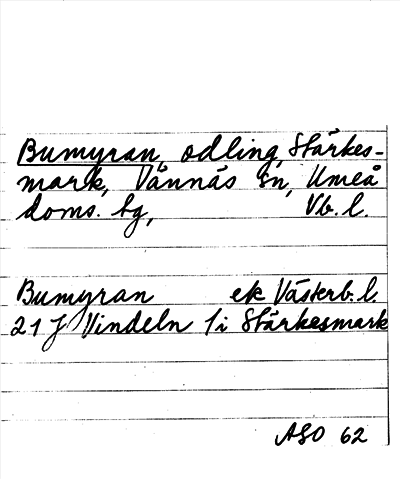 Bumyran, odling, Stärkes-
mark, Vännäs sn, Umeå
doms. bg, Vb. l.
Bumyran ek Västerb. l.
21 J Vindeln 1 i Stärkesmark
ASO 62